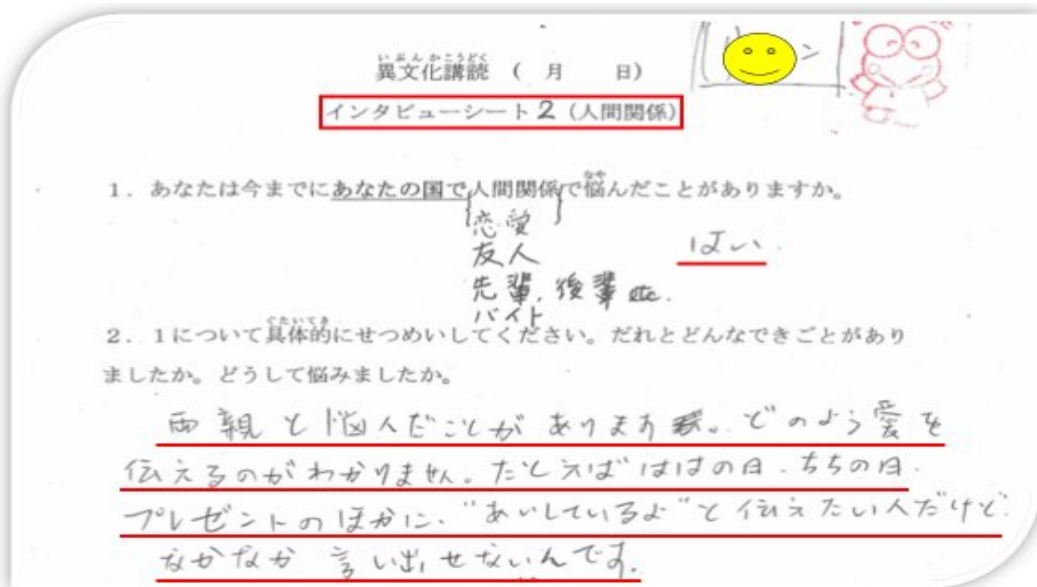 いぶんかこうどく
異文化講読 ( 月 日)
ン
インタビューシート2(人間関係)
なや
1.あなたは今までにあなたの国で人間関係で悩んだことがありますか。
恋愛
友人
はい.
先輩,後輩 etc.
バイト
ぐたいてき
2.1について具体的にせつめいしてください。だれとどんなできごとがあり
ましたか。どうして悩みましたか。
両親と悩んだことがあります。どのよう愛を
伝えるのがわかりません。たとえばははの日、ちちの日.
プレゼントのほかに、"あいしているよ"と伝えたい人だけど.
なかなか言い出せないんです.